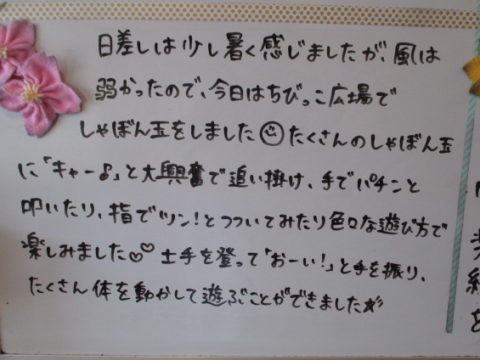 日差しは少し暑く感じましたが、風は
弱かったので、今日はちびっこ広場で
しゃぼん玉をしました☺たくさんのしゃぼん玉
に「キャー♪」と大興奮で追い掛け、手でパチンと
叩いたり、指でツン!とつついてみたり色々な遊び方で
楽しみました♡♡ 土手を登って「おーい!」と手を振り、
たくさん体を動かして遊ぶことができました☆